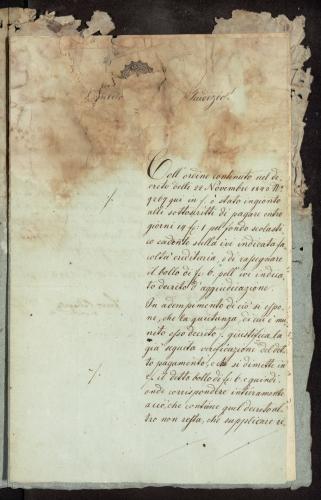 Giudizio!
Coll' ordine contenuto nel de-
creto delli 22 Novembre 1840 N°
9267 qui in f. è stato ingionto
alli sottoscritti di pagare entro
giorni 14 f: 1 pel fondo scolasti-
co cadente sulla ivi indicata fa-
coltà ereditaria, e di rassegnare
il bollo di f: 6. pell' ivi indica-
to decreto d'aggiudicazione.
In adempimento di ciò si espo-
ne, che la quietanza, di cui è mu-
nito esso decreto f. giustifica la
già seguita verificazione del det-
to pagamento, e che si dimette in
f. il detto bollo di f: 6. e quindi
onde corrispondere intieramente
a ciò, che contiene quel decreto al-
tro non resta, che supplicare